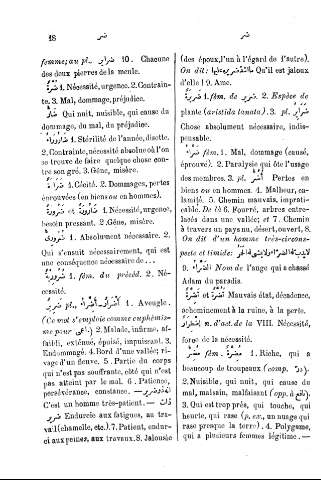 18 ضر ضر
femme; au pl. ضَرَائِر 10. Chacune
des deux pierres de la meule.
ضَرَّة 1. Nécessité, urgence. 2. Contrainte.
3. Mal, dommage, préjudice.
ضَارّ Qui nuit, nuisible, qui cause du
dommage, du mal, du préjudice.
1. Stérilité de l'année, disette.
2. Contrainte, nécessité absolue où l'on
se trouve de faire quelque chose contre
son gré. 3. Gêne, misère.
1. Cécité. 2. Dommages, pertes
éprouvées (en biens ou en hommes).
ضَرُورَة 1. Nécessité, urgence,
besoin pressant. 2. Gêne, misère.
1. Absolument nécessaire. 2.
Qui s'ensuit nécessairement, qui est
une conséquence nécessaire de...
1. fém. du précéd. 2. Nécessité.
ضَرِير pl. أَضْرَار, أَضِرَّاء 1. Aveugle.
(Ce mot s'emploie comme euphémisme
pour أعمى). 2. Malade, infirme, affaibli,
exténué, épuisé, impuissant. 3.
Endommagé. 4. Bord d'une vallée; rivage
d'un fleuve. 5. Partie du corps
qui n'est pas souffrante, côté qui n'est
pas atteint par le mal. 6. Patience,
persévérance, constance.
C'est un homme très-patient.
Endurcie aux fatigues, au travail
(chamelle, etc.). 7. Patient, endurci
aux peines, aux travaux. 8. Jalousie
(des époux, l'un à l'égard de l'autre).
On dit: Qu'il est jaloux
d'elle! 9. Ame.
ضَرِيرَة 1. fém. de ضَرِير 2. Espèce de
plante (aristida lanata). 3. pl. ضَرَائِر
Chose absolument nécessaire, indispensable.
fém. 1. Mal, dommage (causé,
éprouvé). 2. Paralysie qui ôte l'usage
des membres. 3. pl. Pertes en
biens ou en hommes. 4. Malheur, calamité.
5. Chemin mauvais, impraticable.
De là 6. Fourré, arbres entrelacés
dans une vallée; et 7. Chemin
à travers un pays nu, désert, ouvert. 8.
On dit d'un homme très-circonspecte
et timide:
9. Nom de l'ange qui a chassé
Adam du paradis.
et Mauvais état, décadence,
acheminement à la ruine, à la perte.
اضْطِرَار n. d'act. de la VIII. Nécessité,
force de la nécessité.
مُضِرّ fém. مُضِرَّة 1. Riche, qui a
beaucoup de troupeaux (comp. ).
2. Nuisible, qui nuit, qui cause du
mal, malsain, malfaisant (opp. à نافع).
3. Qui est trop près, qui touche, qui
heurte, qui rase (p. ex., un nuage qui
rase presque la terre). 4. Polygame,
qui a plusieurs femmes légitime.